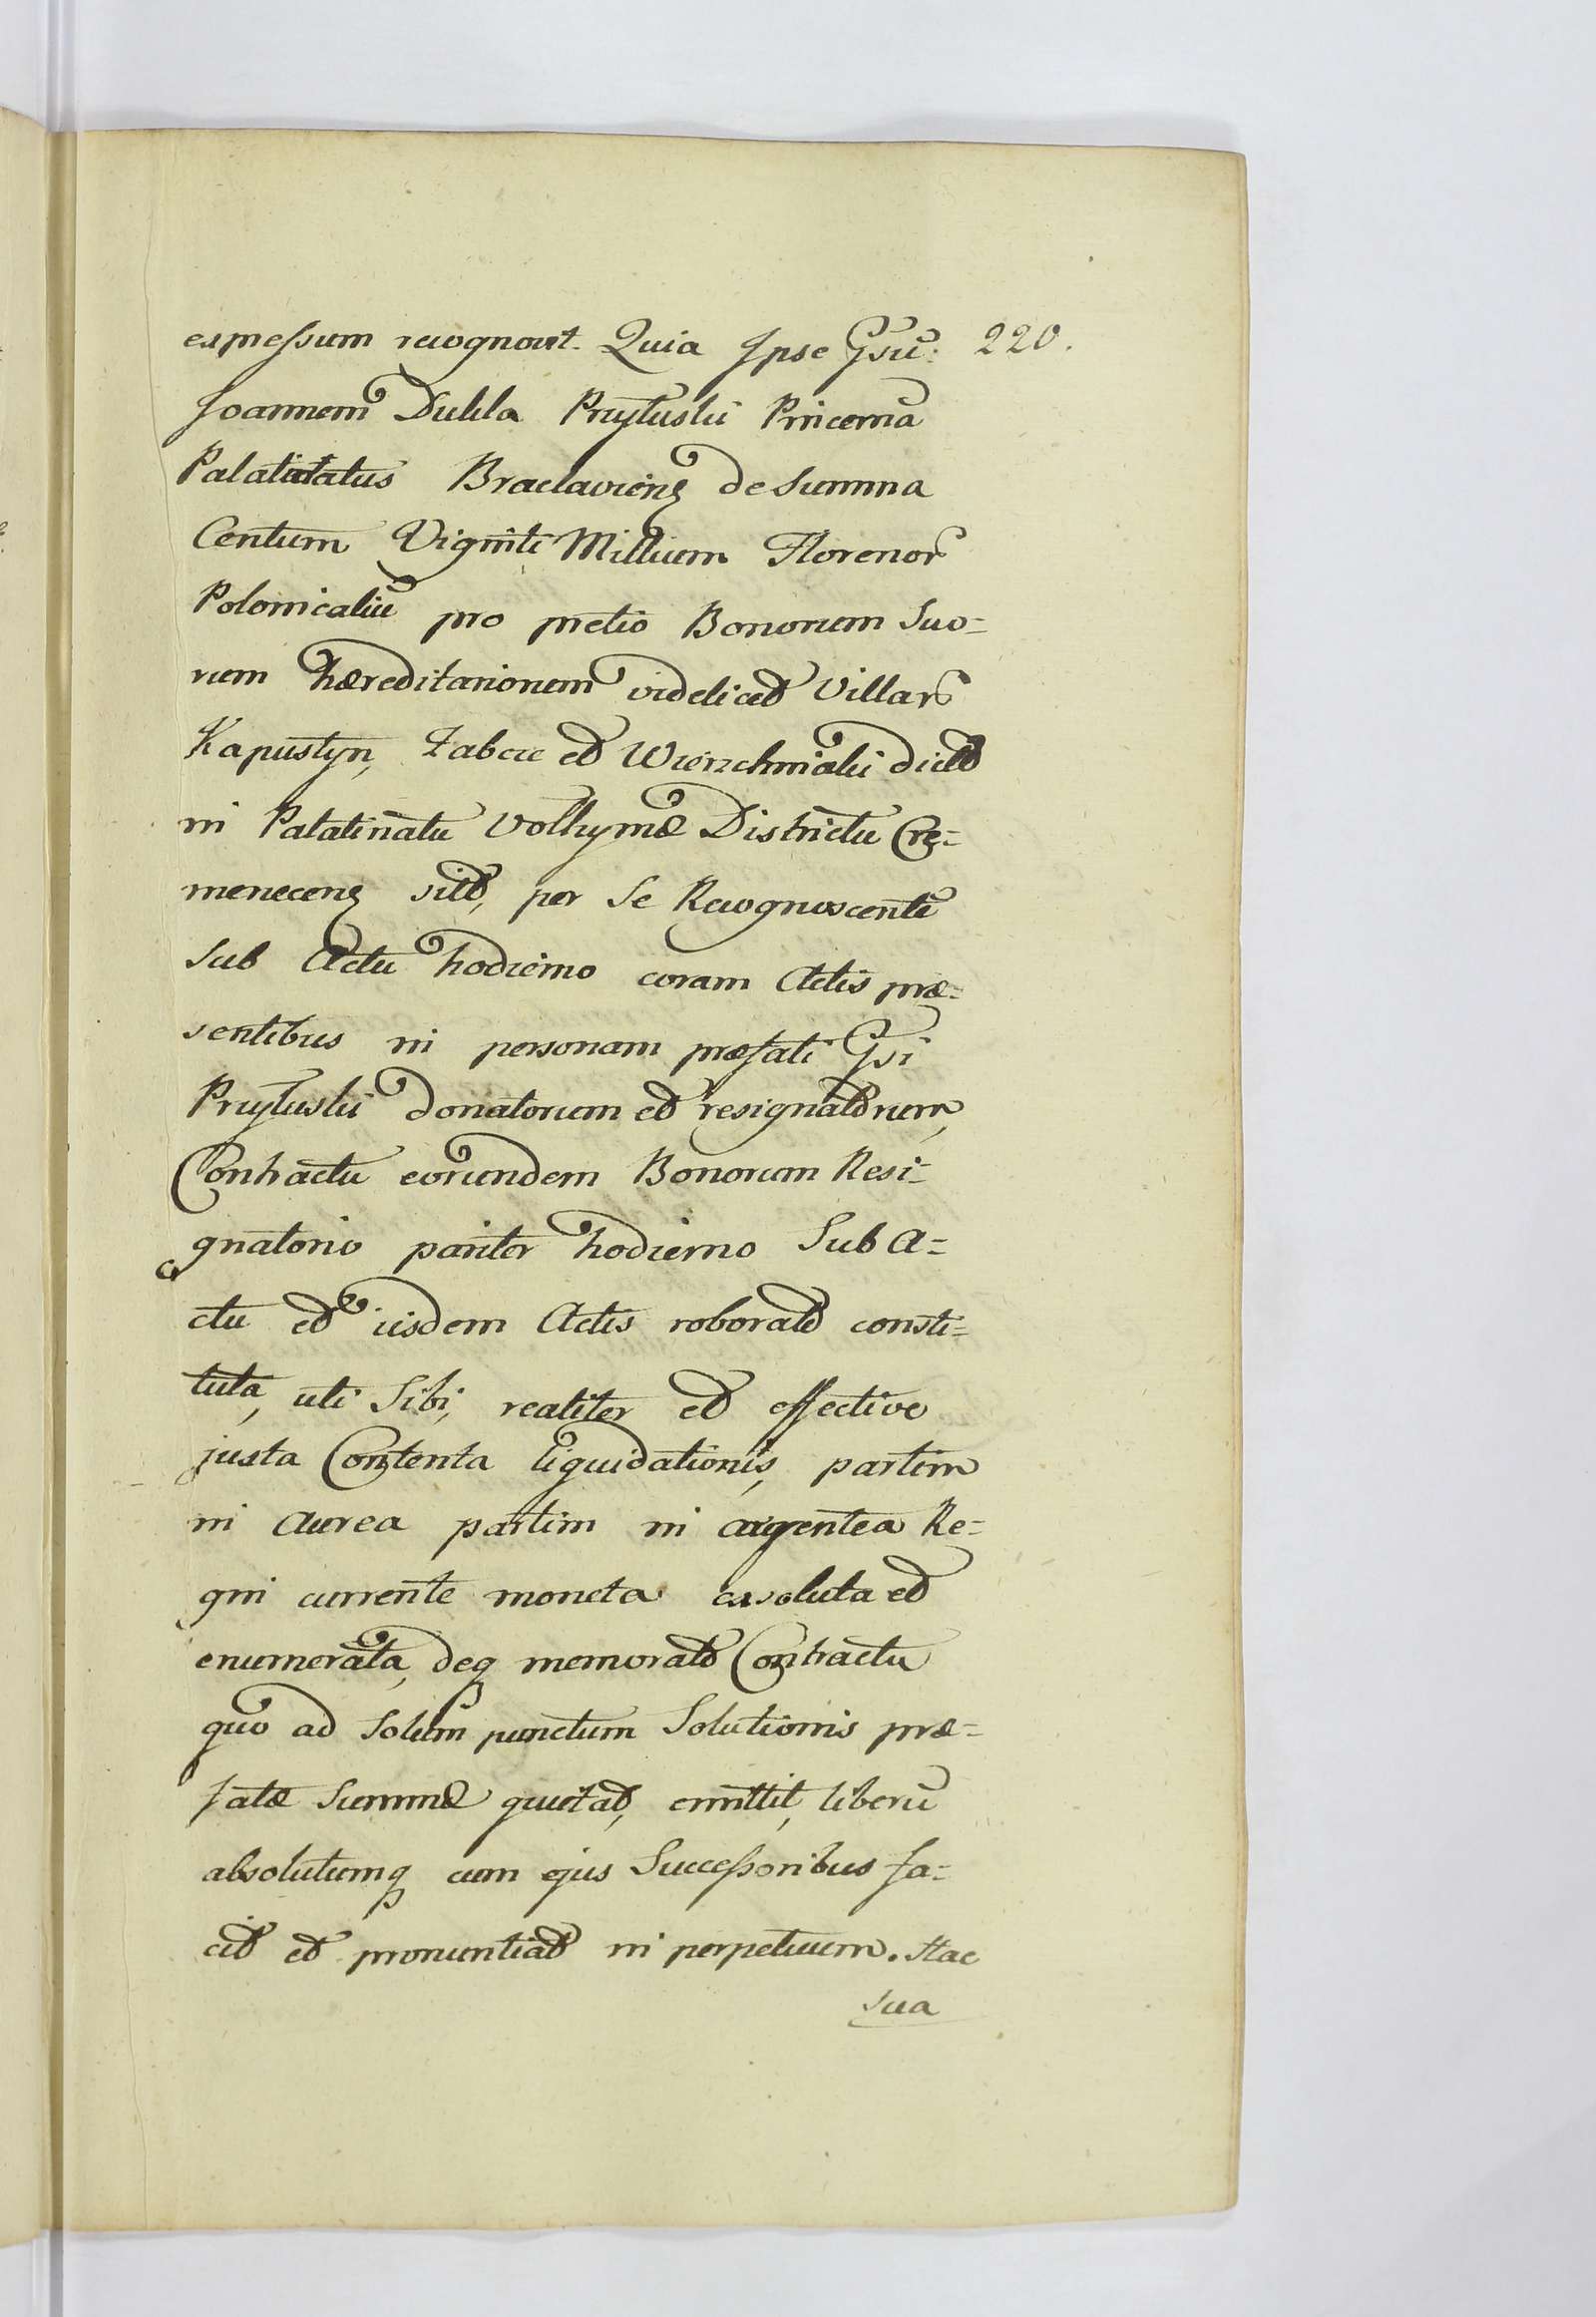 expressum recognovit. Quia Ipse Gsũ: 220.
Joannem Dukla Przyłuski Pincernã
Palatinatus Braclavieñ de Summa
Centum Viginti Millium Florenor̃
Polonicaliũ pro pretio Bonorum Suo=
rum hæreditariorum videlicet Villar̃
Kapustyn, Łabcie et Wierzchniaki dict̃
in Palatinatu Volhyniæ Districtu Cre=
meneceñ sit̃, per Se Recognoscentẽ
Sub Actu hodierno coram Actis præ=
sentibus in personam præfati Gsi
Przyłuski donatorum et resignatorum,
Contractu eorundem Bonorum Resi=
gnatorio pariter hodierno Sub A=
ctu et iisdem Actis roborato consti=
tuta, uti Sibi, realiter et effective
juxta Contenta liquidationis, partim
in aurea partim in argentea Re=
gni currente moneta exoluta et
enumerata, deq memorato Contractu
quo ad Solum punctum Solutionis præ=
fatæ Summæ quietat, emittit, liberũ
absolutumq cum ejus Successoribus fa=
cit et pronuntiat in perpetuum. Hac
Sua